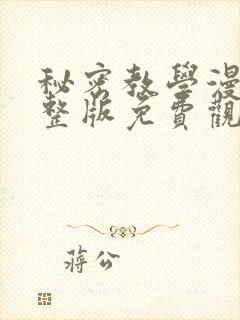 秘密教學漫
整版免費觀
蔣公